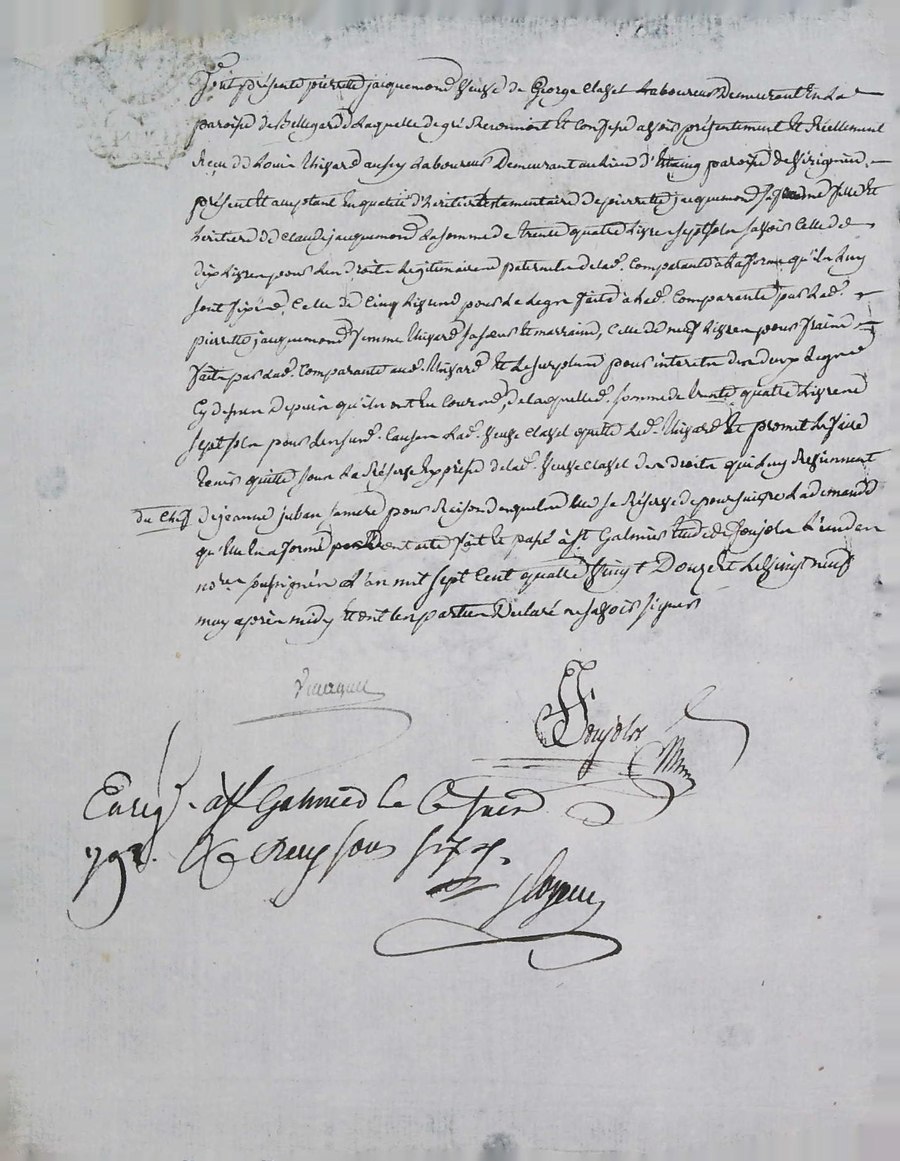 fut présente pierrette jacquemond veuve de George Clavel Laboureur Demeurant En la
paroisse de Bellegarde Laquelle de gré Reconnoit Et Confesse avoir présentement Et Réellement
Reçu de Louis Thizard aussy Laboureur Demeurant au lieu d' paroisse de
présent Et acceptant En qualité d'héritier testamentaire de pierrette jacquemond sa femme fille Et
héritiere de Claude jacquemond La somme de trente quatre Livres sept sols savoir Celle de
dix Livres pour Les droits Légitimaires paternels de lad. Comparante à La forme qu'ils Luy
sont fixés, Celle de Cinq Livres pour Le Legs faite à Lad. Comparante par Lad.
pierrette jacquemond femme Thizard sa sœur Et marraine, Celle de neuf Livres pour
faits par Lad. Comparante aud. Thizard Et Le surplus pour interets des deux Legs
Cy dessus depuis qu'ils ont Eu Cours, de laquelle d. somme de trente quatre Livres
sept sols pour Les susd. Causes Lad. veuve Clavel quitte Led. Thizard Et promet Le faire
tenir quitte sous La Réserve Expresse de lad. veuve Clavel des droits qui Luy Reviennent
du Chef de jeanne sa mere pour Raison desquels Elle se Réserve de poursuivre La demande
qu'Elle En a formé dont acte fait Et passé à St. Galmier Etude de Poujolas L'un des
no.res soussignés L'an mil sept Cent quatre vingt Douze Et Le vingt neuf
may après midy Et ont Les parties Déclaré ne savoir signer
Poujolas
Enreg. à St Galmier le Juin
792. Reçu sous